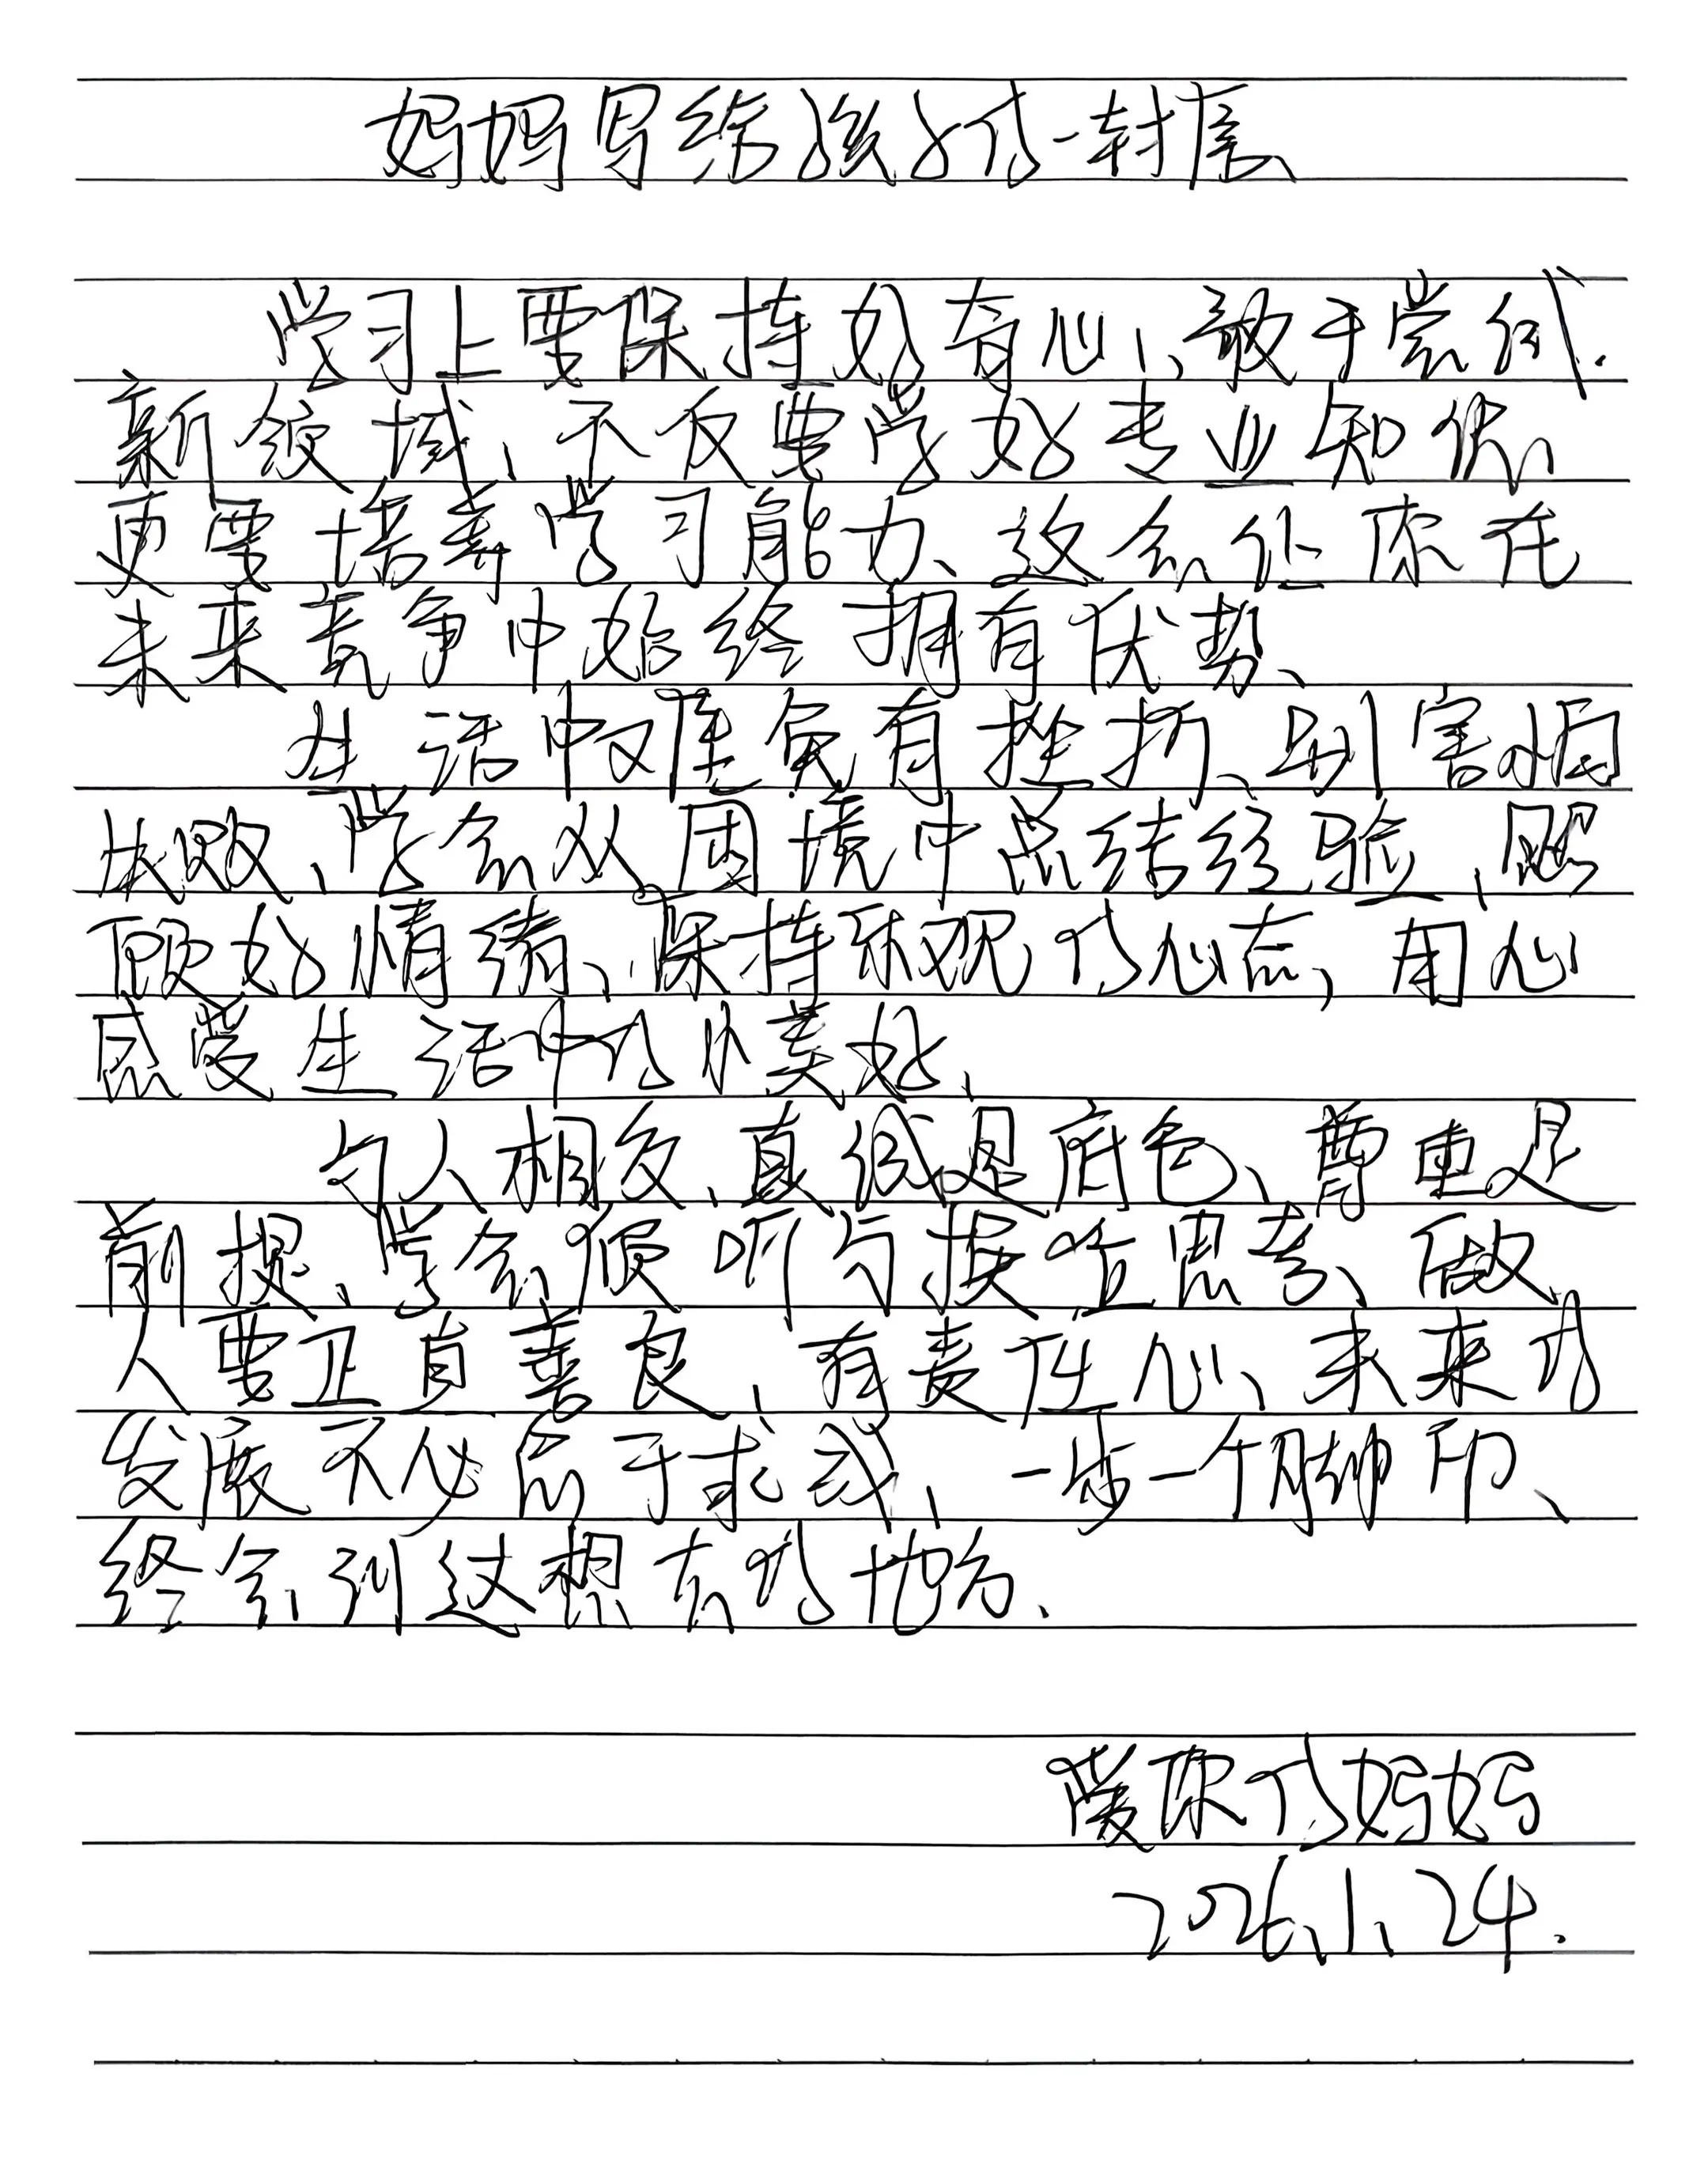 妈妈写给孩子的一封信
学习上要保持好奇心、敢于尝试.
新领域、不仅要学好专业知识、
更要培养学习能力、这会让你在
未来竞争中始终拥有优势、
生活中难免有挫折、别害怕
失败、学会从困境中总结经验、照
顾好情绪、保持乐观的心态,用心
感受生活中的小美好、
与人相交、真诚是底色、尊重是
前提、学会倾听与换位思考、做
人要正直善良、有责任心、未来的
发展不必急于求成、一步一个脚印、
终会到达想去的地方.
爱你的妈妈
2026.1.24.